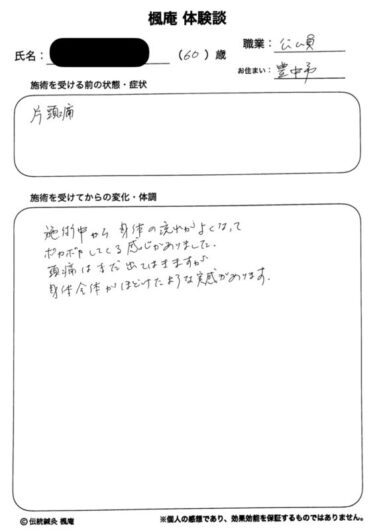 楓庵 体験談
氏名： （60）歳
職業：公務員
お住まい：豊中市
施術を受ける前の状態・症状
片頭痛
施術を受けてからの変化・体調
施術中から 身体の流れがよくなって
ポカポカしてくる感じがありました.
頭痛はまだ出てはきますが
身体全体がほどけたような実感があります.
© 伝統鍼灸 楓庵
※個人の感想であり、効果効能を保証するものではありません。